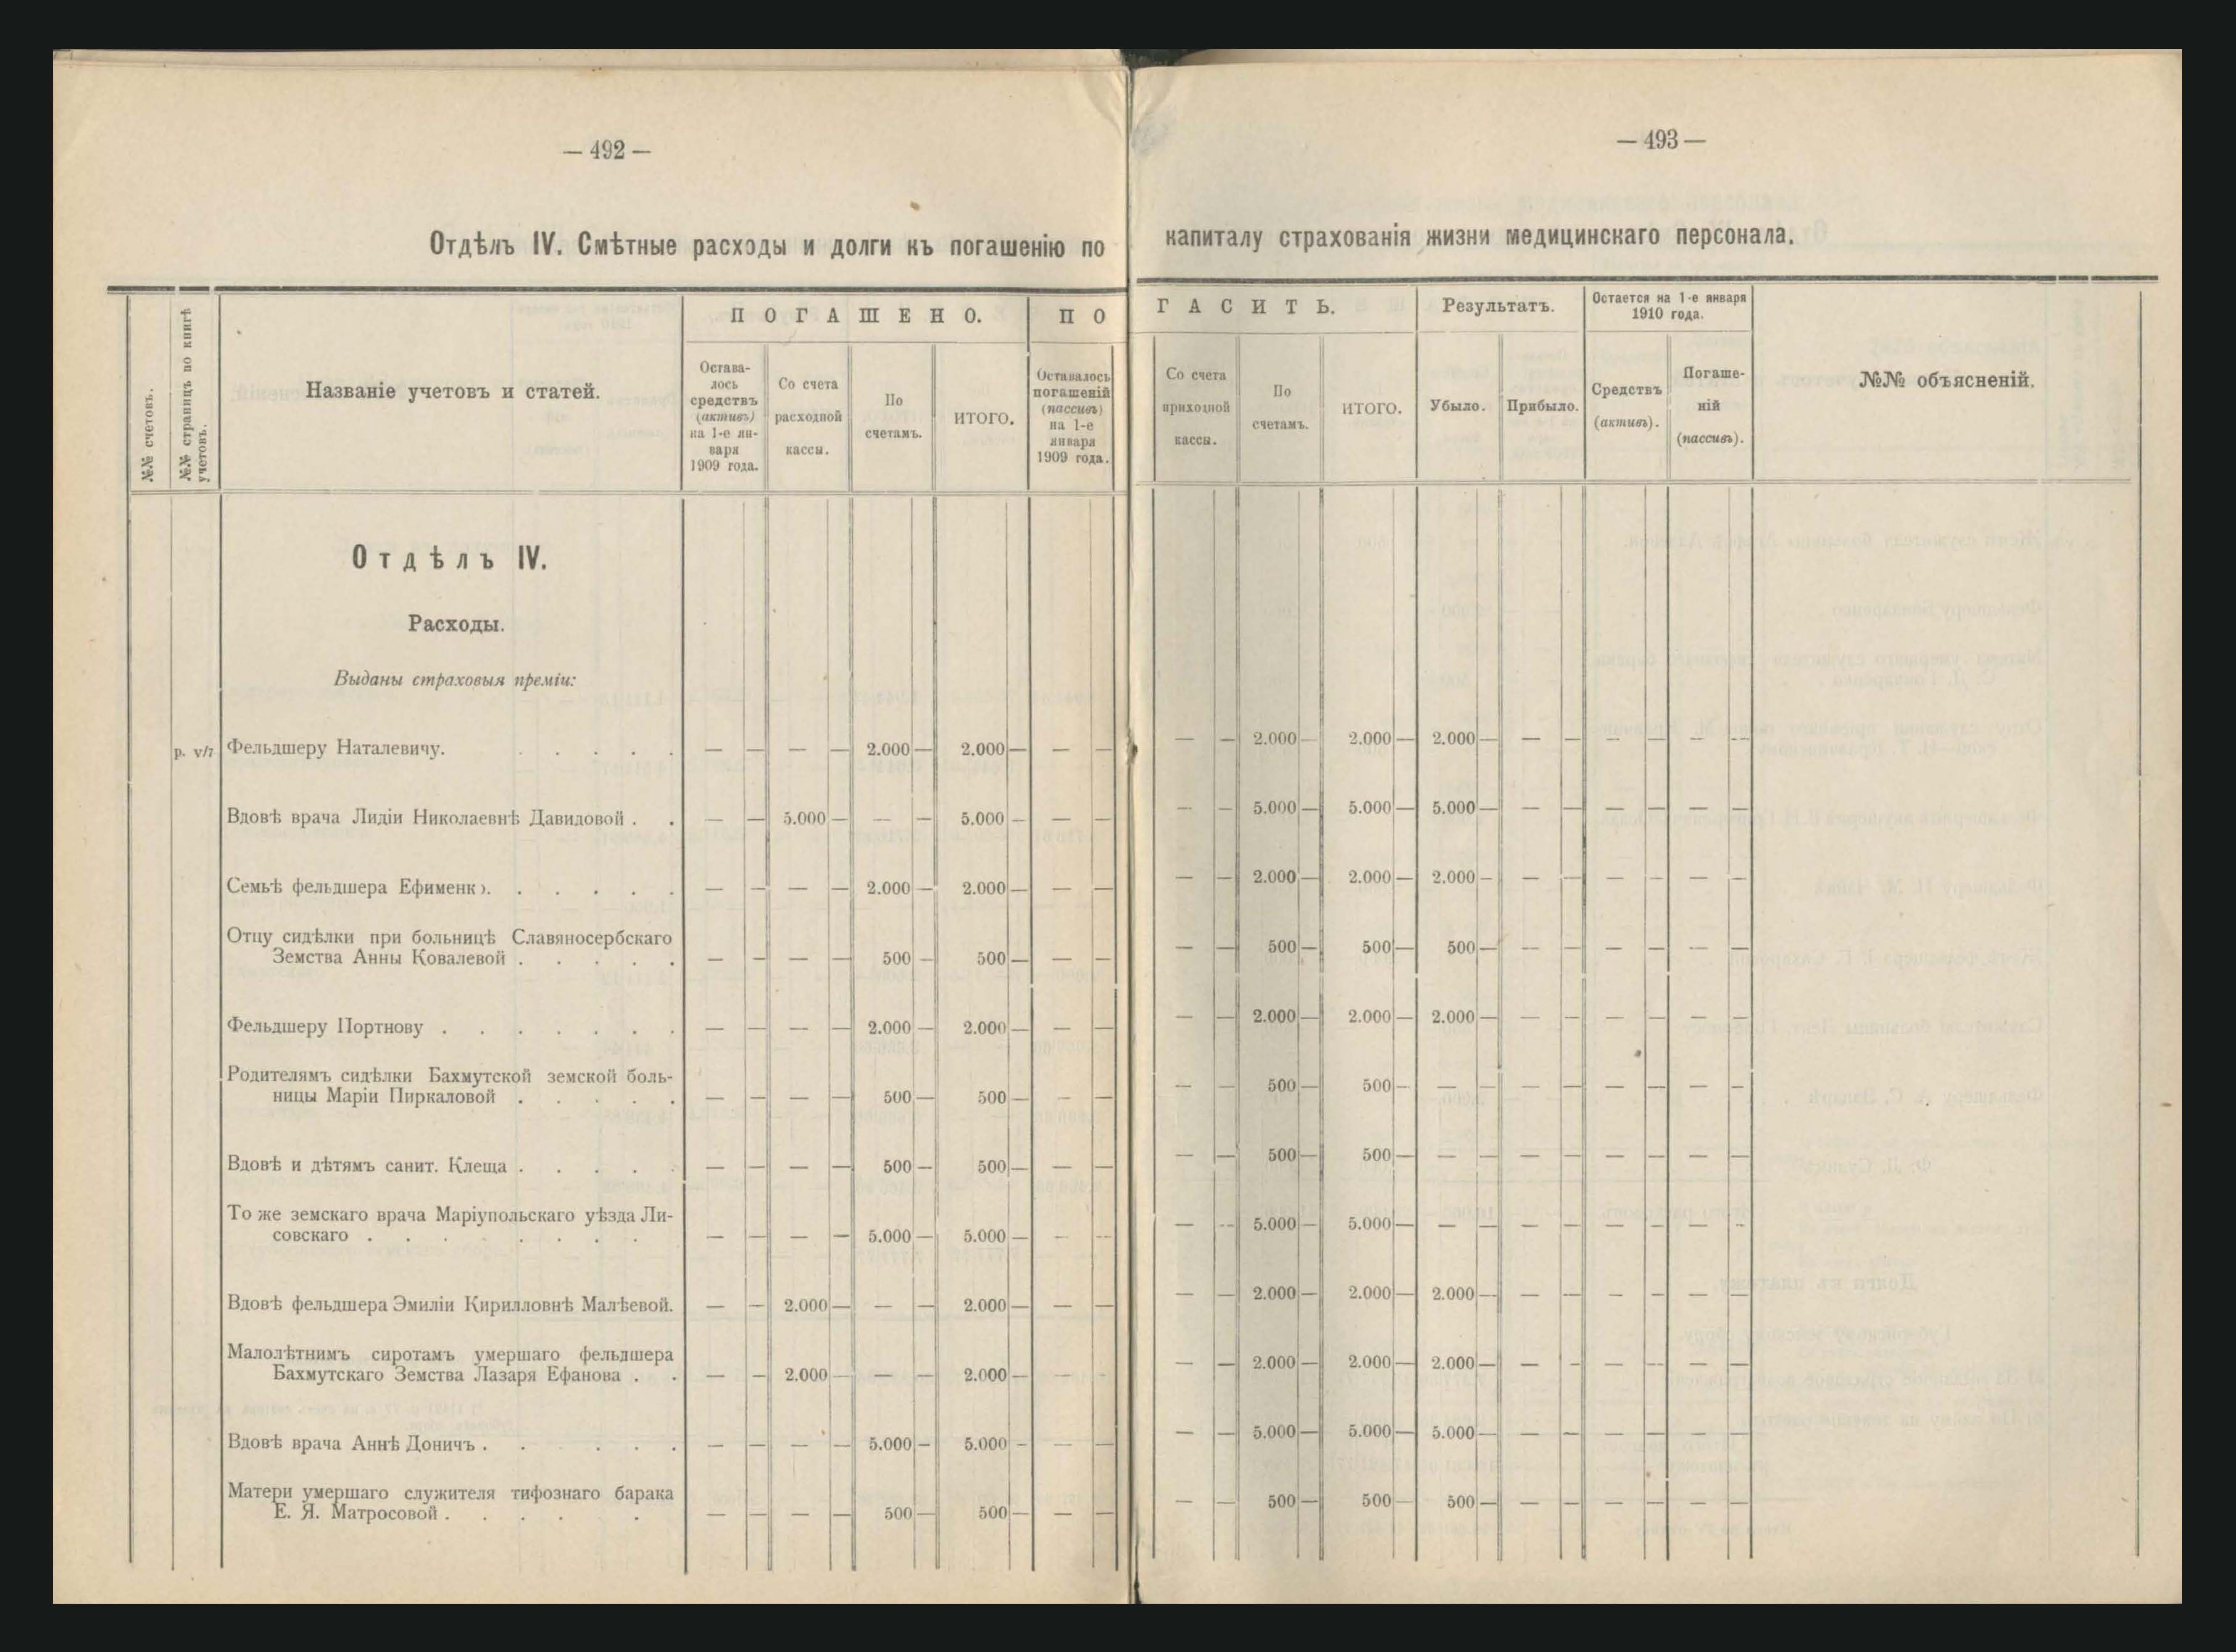 — 492 —
Отдѣлъ IV. Смѣтные расходы и долги къ погашенію по
№№ счетовъ.
№№ страницъ по книгѣ учетовъ.
Названіе учетовъ и статей.
ПОГАШЕНО.
Остава-
лось
средствъ
(активъ)
на 1-е ян-
варя
1909 года.
Со счета
расходной
кассы.
По
счетамъ.
ИТОГО.
ПО
Оставалось
погашеній
(пассивъ)
на 1-е
января
1909 года.
Отдѣлъ IV.
Расходы.
Выданы страховыя преміи:
р. v/7 Фельдшеру Наталевичу. . . . . . — — — — 2.000 — 2.000 — — —
Вдовѣ врача Лидіи Николаевнѣ Давидовой . . — — 5.000 — — — 5.000 — — —
Семьѣ фельдшера Ефименко. . . . . . — — — — 2.000 — 2.000 — — —
Отцу сидѣлки при больницѣ Славяносербскаго
Земства Анны Ковалевой . . . . . — — — — 500 — 500 — — —
Фельдшеру Портнову . . . . . . . — — — — 2.000 — 2.000 — — —
Родителямъ сидѣлки Бахмутской земской боль-
ницы Маріи Пиркаловой . . . . . — — — — 500 — 500 — — —
Вдовѣ и дѣтямъ санит. Клеща . . . . . — — — — 500 — 500 — — —
То же земскаго врача Маріупольскаго уѣзда Ли-
совскаго . . . . . . . . — — — — 5.000 — 5.000 — — —
Вдовѣ фельдшера Эмиліи Кирилловнѣ Малѣевой. — — 2.000 — — — 2.000 — — —
Малолѣтнимъ сиротамъ умершаго фельдшера
Бахмутскаго Земства Лазаря Ефанова . . — — 2.000 — — — 2.000 — — —
Вдовѣ врача Аннѣ Доничъ . . . . . — — — — 5.000 — 5.000 — — —
Матери умершаго служителя тифознаго барака
Е. Я. Матросовой . . . . . — — — — 500 — 500 — — —
— 493 —
капиталу страхованія жизни медицинскаго персонала.
ГАСИТЬ.
Со счета
приходной
кассы.
По
счетамъ.
ИТОГО.
Результатъ.
Убыло.
Прибыло.
Остается на 1-е января
1910 года.
Средствъ
(активъ).
Погаше-
ній
(пассивъ).
№№ объясненій.
— — 2.000 — 2.000 — 2.000 — — — — — — —
— — 5.000 — 5.000 — 5.000 — — — — — — —
— — 2.000 — 2.000 — 2.000 — — — — — — —
— — 500 — 500 — 500 — — — — — — —
— — 2.000 — 2.000 — 2.000 — — — — — — —
— — 500 — 500 — — — — — — — — —
— — 500 — 500 — — — — — — — — —
— — 5.000 — 5.000 — — — — — — — — —
— — 2.000 — 2.000 — 2.000 — — — — — — —
— — 2.000 — 2.000 — 2.000 — — — — — — —
— — 5.000 — 5.000 — 5.000 — — — — — — —
— — 500 — 500 — 500 — — — — — — —